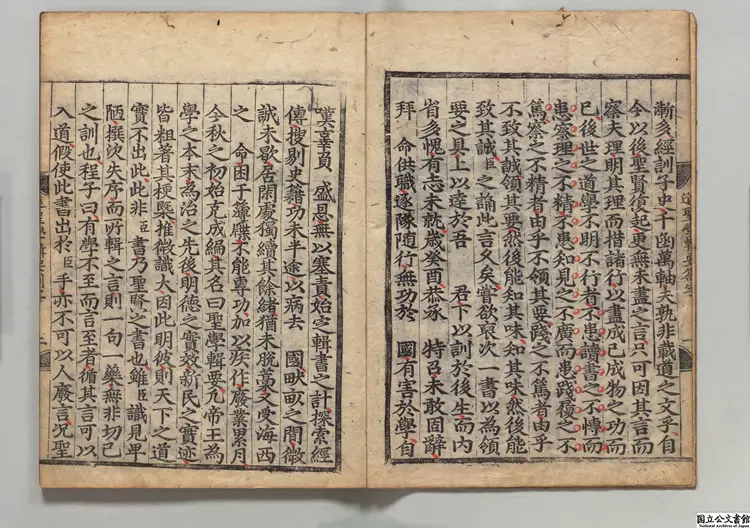 漸多經訓子史千函萬軸夫孰非載道之文乎自
今以後聖賢復起更無未盡之言只可因其言而
察夫理明其理而措諸行以盡成己成物之功而
已後世之道學不明不行者不患讀書之不博而
患察理之不精不患知見之不廣而患踐履之不
篤察之不精者由乎不領其要踐之不篤者由乎
不致其誠領其要然後能知其味知其味然後能
致其誠臣之誦此言久矣嘗欲裒次一書以爲領
要之具上以達於吾 君下以訓於後生而內
省多愧有志未就歲癸酉恭承 特召未敢固辭
拜 命供職逐隊隨行無功於 國有害於學自
嘆辜負 盛恩無以塞責始定輯書之計探索經
傳搜剔史籍功未半途以病去 國畎畝之間微
誠未歇居閑處獨續其餘緖猶未脫藁又受海西
之 命困于簿牒不能專功加以疾作廢業累月
今秋之初始克成編其名曰聖學輯要凡帝王爲
學之本末爲治之先後明德之實效新民之實迹
皆粗著其梗槩推微識大因此明彼則天下之道
實不出此此非臣書乃聖賢之書也雖臣識見卑
陋撰次失序而所輯之言則一句一藥無非切己
之訓也程子曰有學不至而言至者循其言可以
入道假使此書出於臣手亦不可以人廢言況聖
国立公文書館
National Archives of Japan